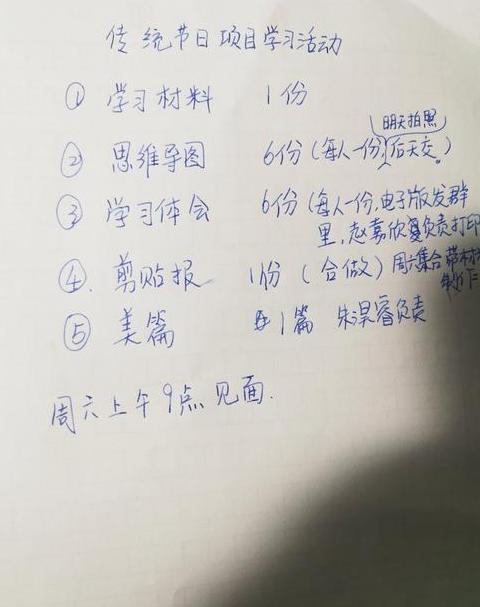 传统节日项目学习活动
① 学习材料 1份
明天拍照
② 思维导图 6份(每人一份,后天交。)
③ 学习体会 6份(每人一份,电子版发群
里,赵嘉欣负责打印
④. 剪贴报 1份(合做)周六集合带材
⑤ 美篇 1篇 朱淏睿负责
周六上午9点见面.